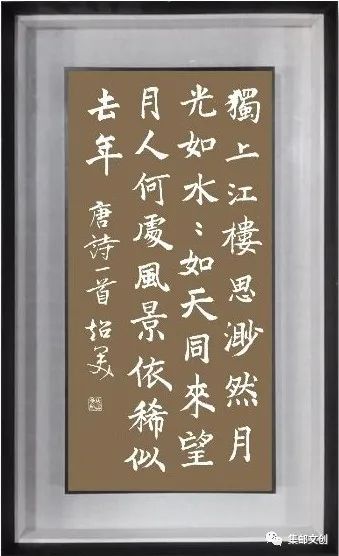 獨上江樓思渺然月
光如水〻如天同來望
月人何處風景依稀似
去年
唐詩一首 美
集邮文创